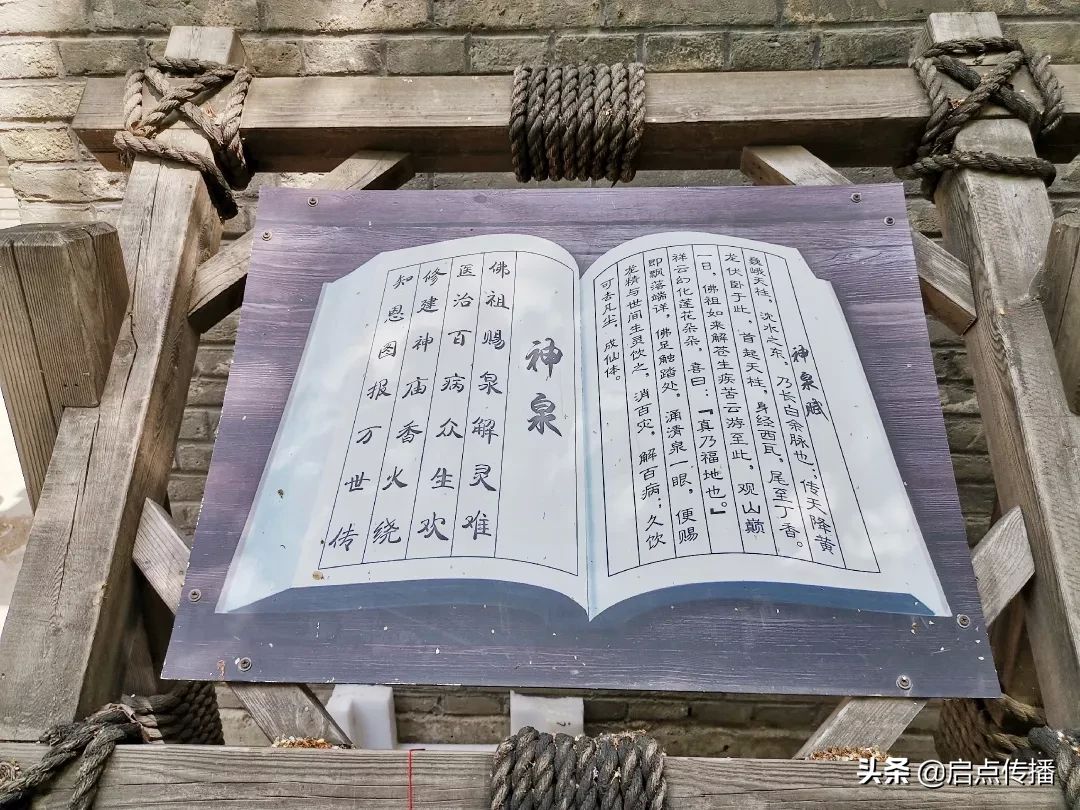 神泉赋
巍峨天柱，沈水之东，乃长白余脉也；传天降黄
龙伏卧于此，首起天柱，身经西瓦，尾至丁香。
一日，佛祖如来解苍生疾苦云游至此，观山巅
祥云幻化莲花朵朵，喜曰：『真乃福地也。』
即飘落端详，佛足触踏处，涌清泉一眼，便赐
龙精与世间生灵饮之，消百灾，解百病；久饮
可去凡尘，成仙体。
神泉
佛祖赐泉解灵难
医治百病众生欢
修建神庙香火绕
知恩图报万世传
头条 @启点传播